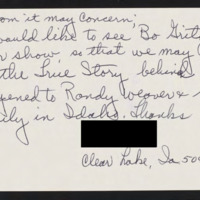 om it may Concern;
ould like to see Bo Grit
n show, so that we may
the True Story behind
pened to Randy Weaver &
ily in Idaho. Thanks
Clear Lake, Ia 50